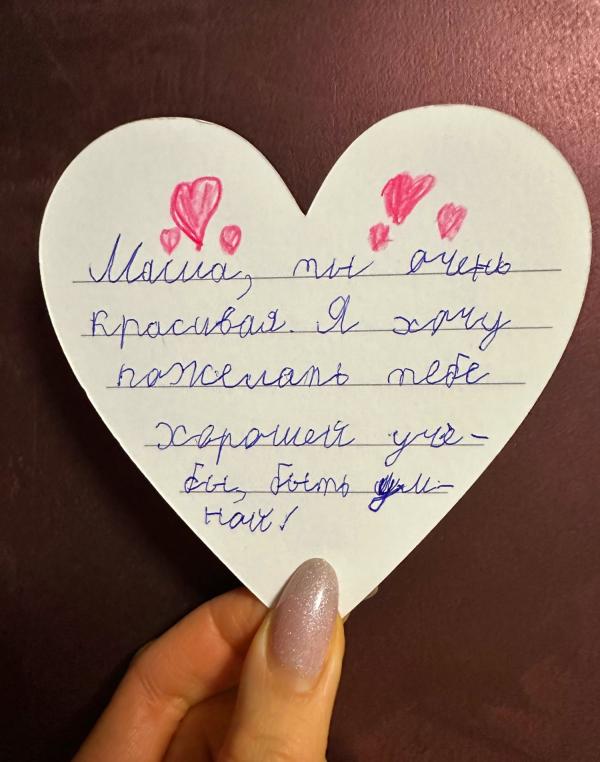 Маша, ты очень
красивая. Я хочу
пожелать тебе
хорошей учё-
бы, быть ум-
ной!